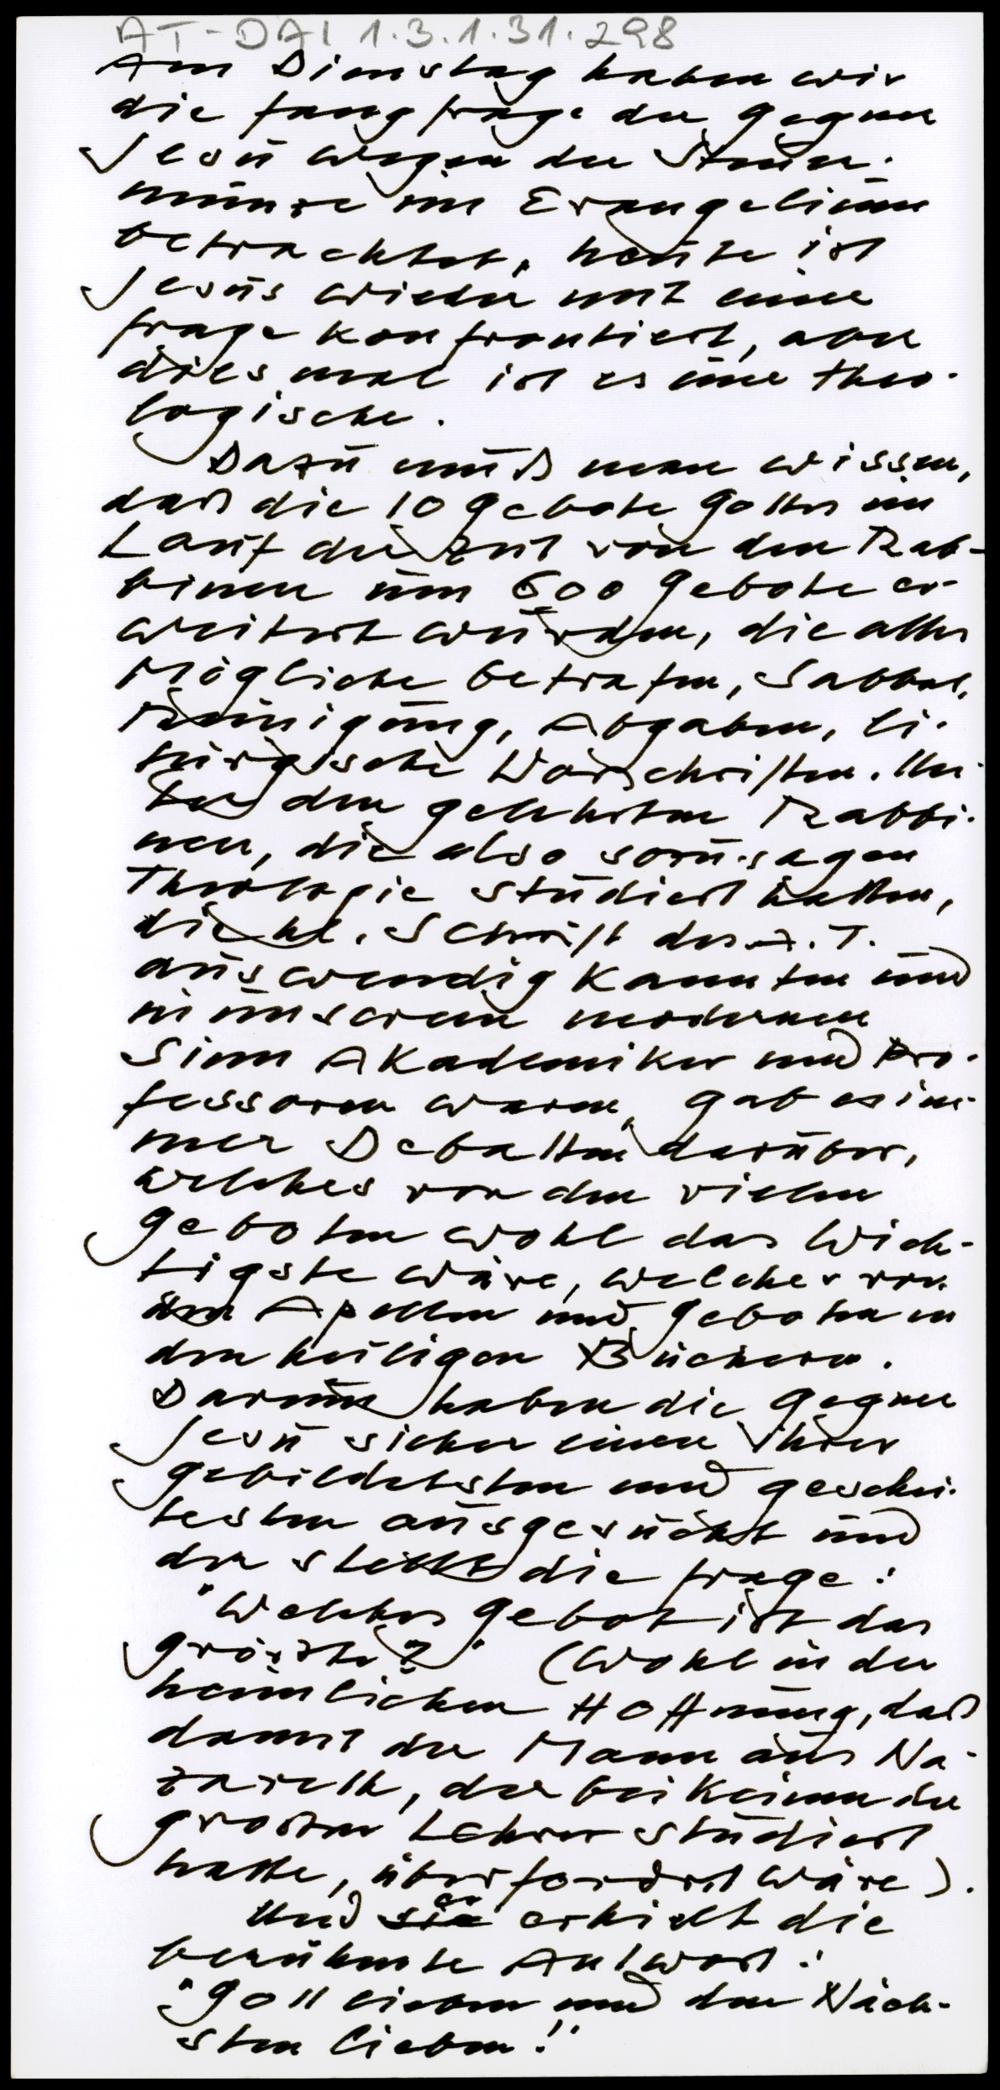 AT-DAI 1.3.1.31.298
Am Dienstag haben wir
die Fangfrage der Gegner
Jesu wegen der Steuer-
münze im Evangelium
betrachtet, heute ist
Jesus wieder mit einer
Frage konfrontiert, aber
diesmal ist es eine theo-
logische.
Dazu muß man wissen,
daß die 10 Gebote Gottes im
Lauf der Zeit von den Rab-
binen um 600 Gebote er-
weitert wurden, die alles
Mögliche betrafen, Sabbat,
Reinigung, Abgaben, li-
turgische Vorschriften. Un-
ter den gelehrten Rabbi-
nen, die also sozusagen
Theologie studiert hatten,
die hl. Schrift des A.T.
auswendig kannten und
in unserem modernen
Sinn Akademiker und Pro-
fessoren waren, gab es im-
mer Debatten darüber,
welches von den vielen
Geboten wohl das Wich-
tigste wäre, welcher von
den Apellen und Geboten in
den heiligen Büchern.
Darum haben die Gegner
Jesu sicher einen ihrer
gebildetsten und geschei-
testen ausgesucht und
der stellt die Frage:
"Welches Gebot ist das
größte?" (Wohl in der
heimlichen Hoffnung, daß
damit der Mann aus Na-
zareth, der bei keinem der
großen Lehrer studiert
hatte, überfordert wäre).
Und er erhielt die
berühmte Antwort:
"Gott lieben und den Näch-
sten lieben!"